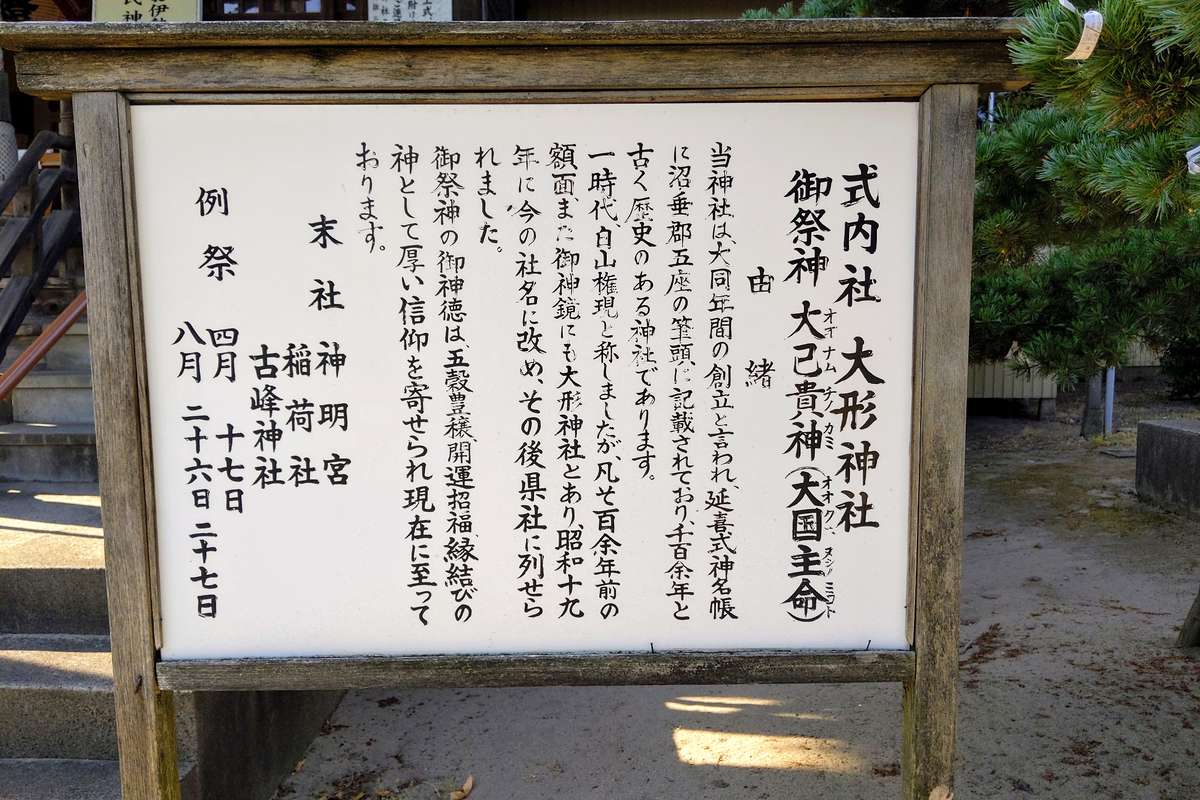 式内社 大形神社
御祭神 大己貴神(大国主命)
オオナムチノカミ
由緒
当神社は、大同年間の創立と言われ、延喜式神名帳
に沼垂郡五座の筆頭に記載されており、千百余年と
古く歴史のある神社であります。
一時代、白山権現と称しましたが、凡そ百余年前の
額面、また御神鏡にも大形神社とあり、昭和十九
年に今の社名に改め、その後県社に列せら
れました。
御祭神の御神徳は、五穀豊穣、開運招福、縁結びの
神として厚い信仰を寄せられ現在に至って
おります。
末社 神明宮
稲荷社
古峰神社
例祭 四月 十七日
八月 二十六日 二十七日